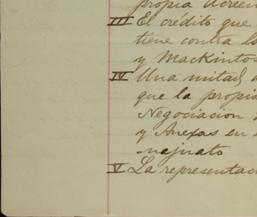 propia
III El crédito que
tiene contra
y Mackintos
IV Una mitad
que la propia
Negociacion
y Anexas en
-najuato
V La representac